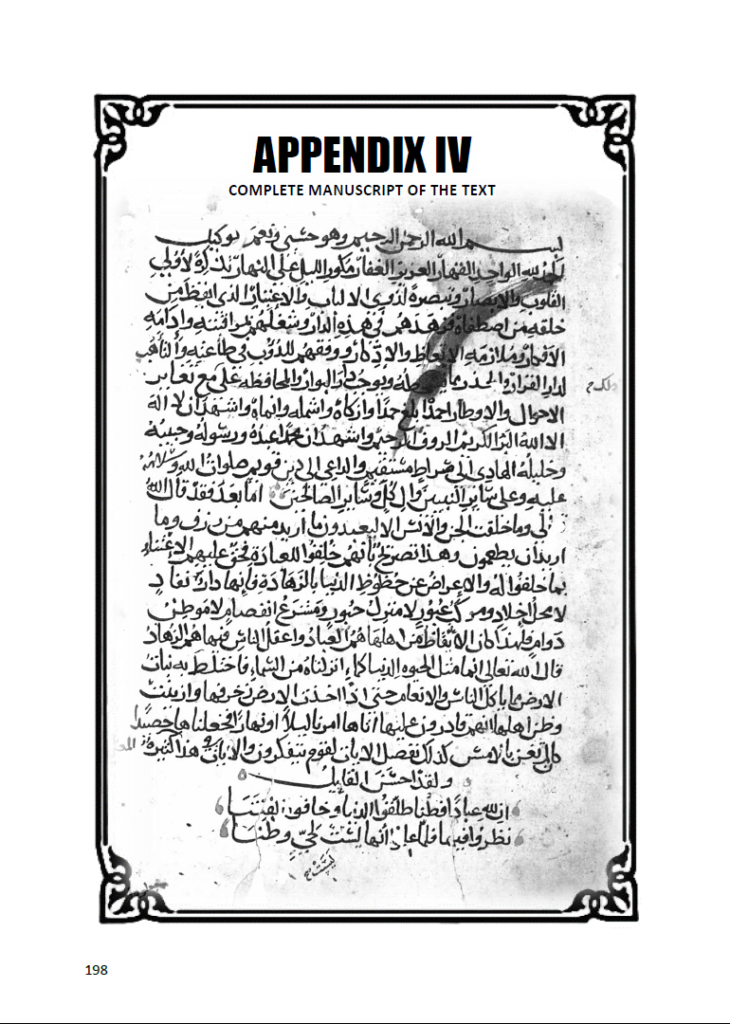 APPENDIX IV
COMPLETE MANUSCRIPT OF THE TEXT
بسم الله الرحمن الرحيم وهو حسبي ونعم الوكيل
الحمد لله الواحد القهار العزيز الغفار مكور الليل على النهار تذكرة لأولي
القلوب والابصار وتبصرة لذوي الالباب والاعتبار الذي ايقظ من
خلقه من اصطفاه فزهدهم في هذه الدار وشغلهم بمراقبته وادامة
الافكار وملازمة الاتعاظ والادكار ووفقهم للدؤب في طاعته والتأهب
لدار القرار والحذر مما يسخطه ويوجب دار البوار والمحافظة على مع تغاير
ذلك
الاحوال والاوطار احمده ابلغ حمد وازكاه واشمله وانماه واشهد ان لا اله
الا الله البر الكريم الروف الرحيم واشهد ان محمدا عبده ورسوله وحبيبه
وخليله الهادي الى صراط مستقيم والداعي الى دين قويم صلوات الله وسلامه
عليه وعلى سائر النبيين وال كل وسائر الصالحين اما بعد فقد قال الله
تعالى وما خلقت الجن والانس الا ليعبدون ما اريد منهم من رزق وما
اريد ان يطعمون وهذا تصريح بأنهم خلقوا للعبادة فحق عليهم الاعتناء
بما خلقوا له والاعراض عن حظوظ الدنيا بالزهادة فإنها دار نفاد
لا محل اخلاد ومركب عبور لا منزل حبور ومشرع انفصام لا موطن
دوام فلهذا كان الايقاظ من اهلها هم العباد واعقل الناس فيها هم الزهاد
قال الله تعالى انما مثل الحيوة الدنيا كماء انزلناه من السماء فاختلط به نبات
الارض مما يأكل الناس والانعام حتى اذا اخذت الارض زخرفها وازينت
وظن اهلها انهم قادرون عليها اتاها امرنا ليلا او نهارا فجعلناها حصيدا
كان لم تغن بالامس كذلك نفصل الايات لقوم يتفكرون والايات في هذا كثيرة
ولقد احسن القايل
ان لله عبادا فطنا طلقوا الدنيا وخافوا الفتنا
نظروا فيها فلما علموا انها ليست لحي وطنا
198